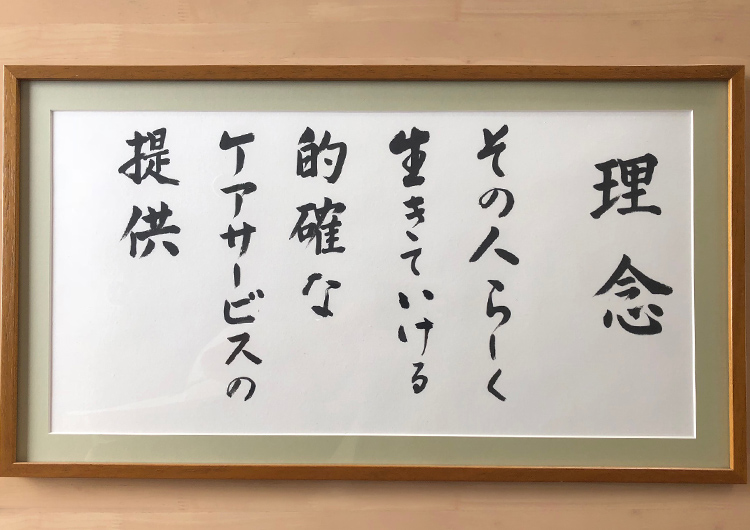 理念
その人らしく
生きていける
的確な
ケアサービスの
提供